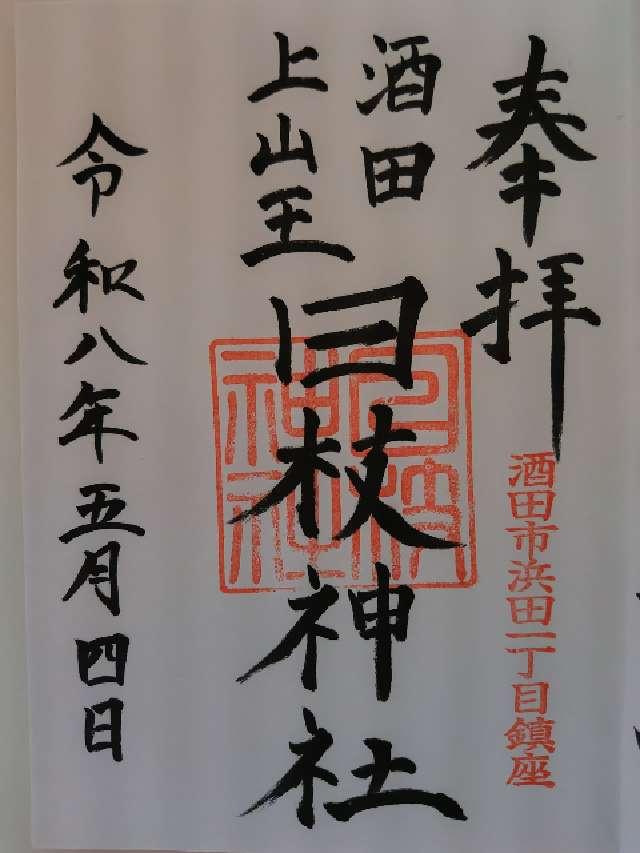 奉拝
酒田市浜田一丁目鎮座
酒田
上山王
日枝神社
令和八年五月四日